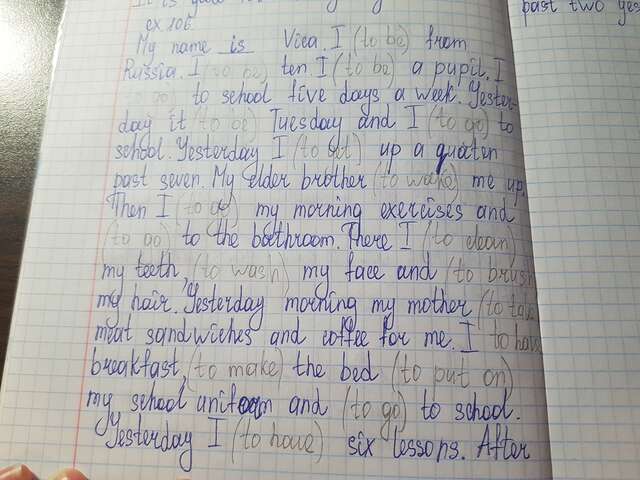 ex 106
past two yes
My name is Vica. I (to be) from
Russia. I (to be) ten. I (to be) a pupil. I
to school five days a week. Yester-
day it (to be) Tuesday and I (to go) to
school. Yesterday I (to get) up a quaten
past seven. My elder brother (to wake) me up.
Then I (to do) my morning exercises and
(to go) to the bathroom. There I (to clean)
my teeth, (to wash) my face and (to brush
my hair. Yesterday morning my mother (to tak
meat sandwiches and coffee for me. I to have
breakfast, (to make) the bed (to put on)
my school uniform and (to go) to school.
Yesterday I (to have) six lessons. After